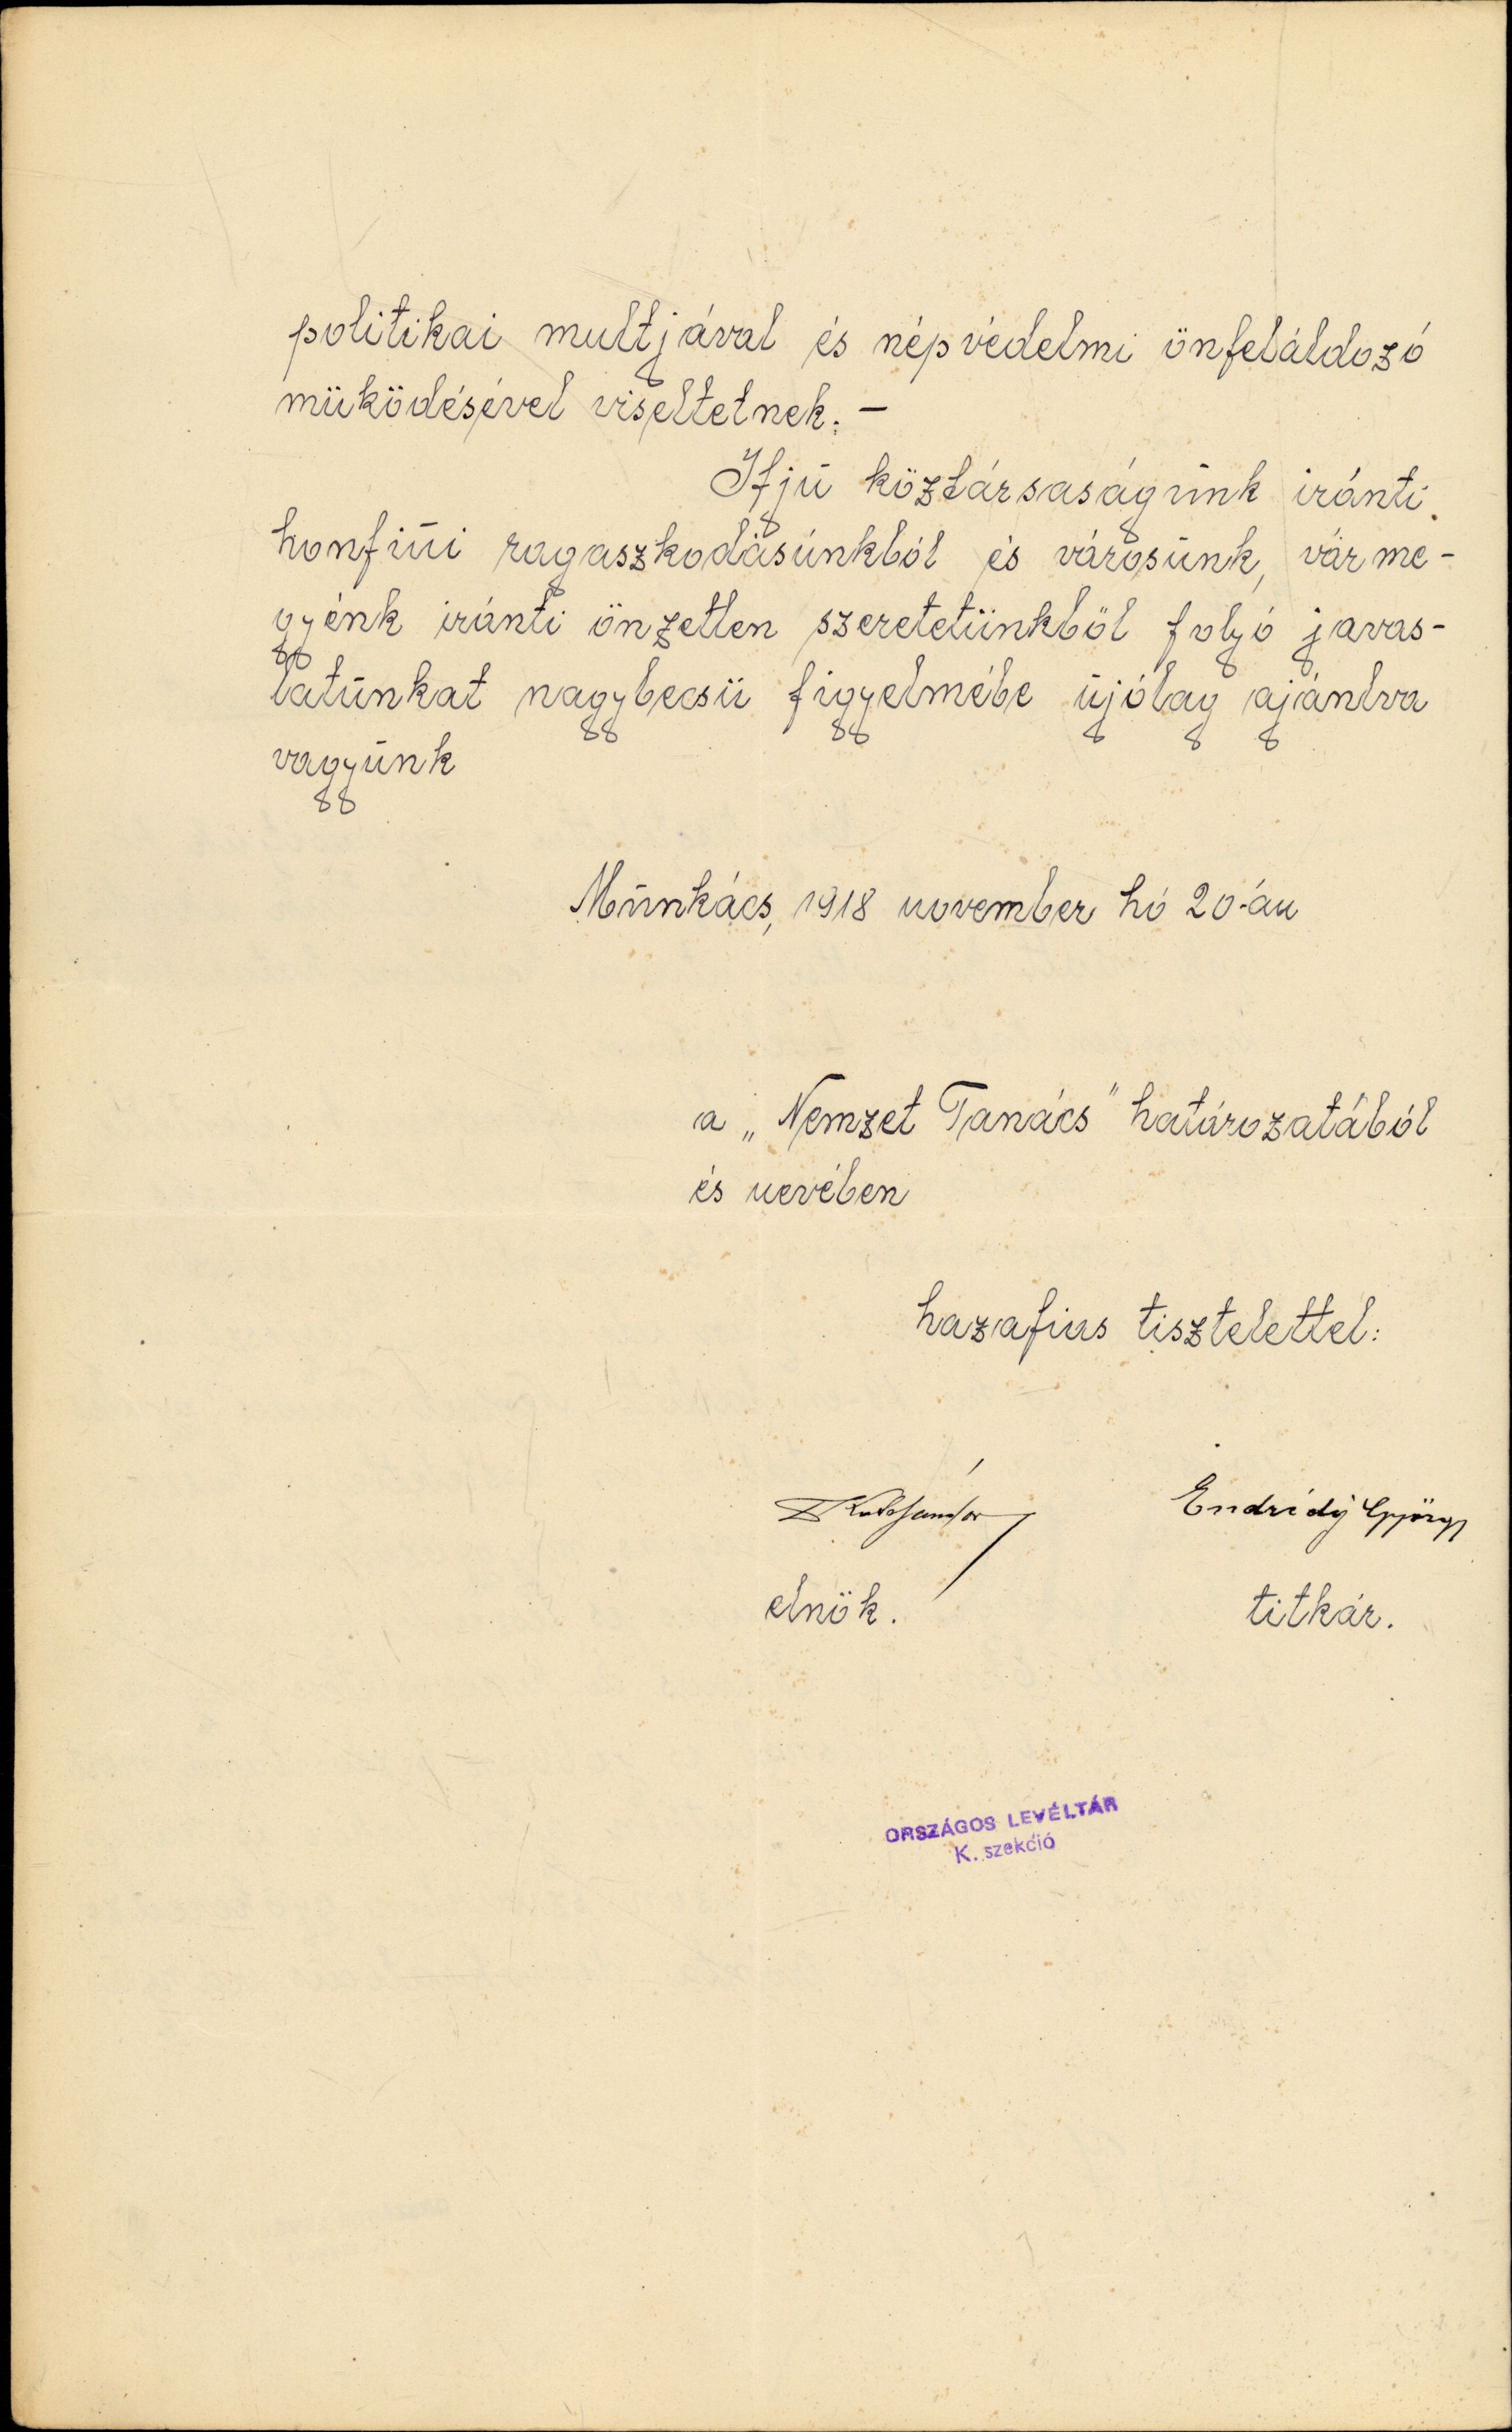 politikai multjával és népvédelmi önfeláldozó
müködésével viseltetnek. –
Ifjú köztársaságunk iránti
honfiúi ragaszkodásunkból és városunk, várme-
gyénk iránti önzetlen szeretetünkből folyó javas-
latunkat nagybecsü figyelmébe újólag ajánlva
vagyunk
Munkács, 1918 november hó 20-án
a „Nemzet Tanács" határozatából
és nevében
hazafias tisztelettel:
Endrédÿ György
elnök. titkár.
ORSZÁGOS LEVÉLTÁR
K. szekció